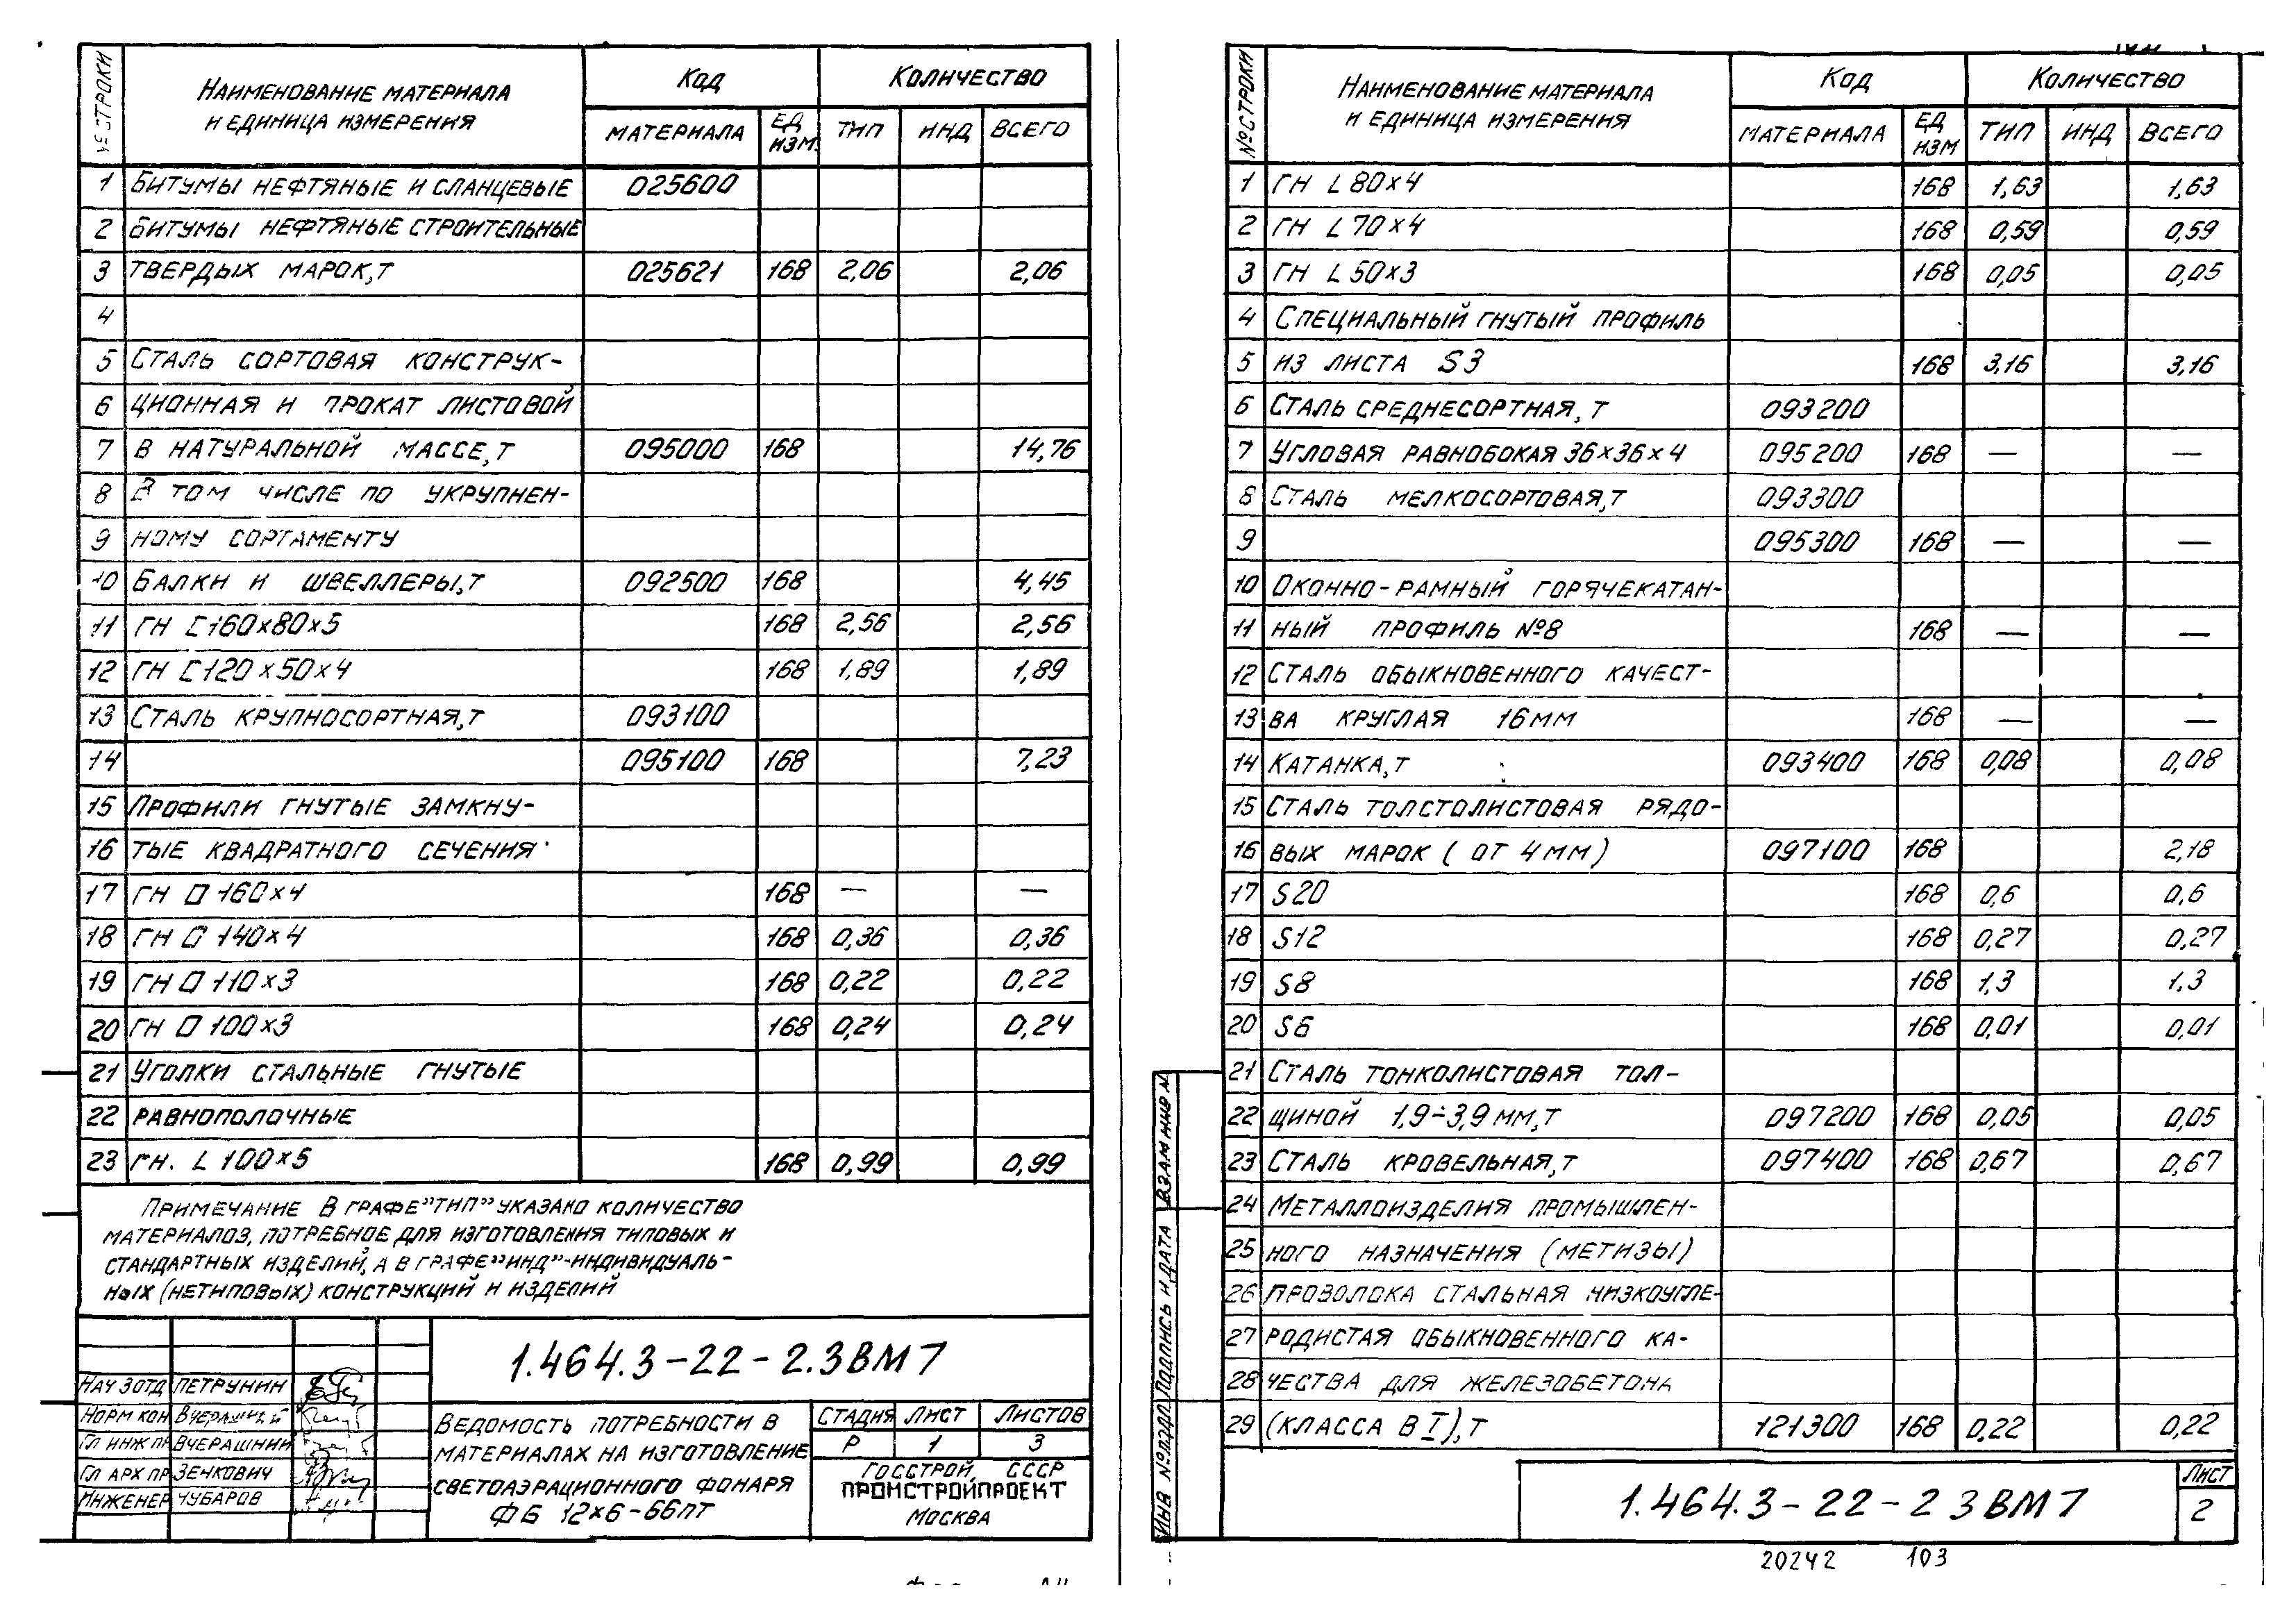 № СТРОКИ НАИМЕНОВАНИЕ МАТЕРИАЛА И ЕДИНИЦА ИЗМЕРЕНИЯ КОД КОЛИЧЕСТВО
МАТЕРИАЛА ЕД ИЗМ. ТИП ИНД ВСЕГО
1 БИТУМЫ НЕФТЯНЫЕ И СЛАНЦЕВЫЕ 025600
2 БИТУМЫ НЕФТЯНЫЕ СТРОИТЕЛЬНЫЕ
3 ТВЕРДЫХ МАРОК,Т 025621 168 2,06 2,06
4
5 СТАЛЬ СОРТОВАЯ КОНСТРУК-
6 ЦИОННАЯ И ПРОКАТ ЛИСТОВОЙ
7 В НАТУРАЛЬНОЙ МАССЕ,Т 095000 168 14,76
8 В ТОМ ЧИСЛЕ ПО УКРУПНЕН-
9 НОМУ СОРТАМЕНТУ
10 БАЛКИ И ШВЕЛЛЕРЫ,Т 092500 168 4,45
11 ГН [160×80×5 168 2,56 2,56
12 ГН [120×50×4 168 1,89 1,89
13 СТАЛЬ КРУПНОСОРТНАЯ,Т 093100
14 095100 168 7,23
15 ПРОФИЛИ ГНУТЫЕ ЗАМКНУ-
16 ТЫЕ КВАДРАТНОГО СЕЧЕНИЯ
17 ГН □ 160×4 168 — —
18 ГН □ 140×4 168 0,36 0,36
19 ГН □ 110×3 168 0,22 0,22
20 ГН □ 100×3 168 0,24 0,24
21 УГОЛКИ СТАЛЬНЫЕ ГНУТЫЕ
22 РАВНОПОЛОЧНЫЕ
23 ГН. L 100×5 168 0,99 0,99
ПРИМЕЧАНИЕ В ГРАФЕ "ТИП" УКАЗАНО КОЛИЧЕСТВО
МАТЕРИАЛОВ, ПОТРЕБНОЕ ДЛЯ ИЗГОТОВЛЕНИЯ ТИПОВЫХ И
СТАНДАРТНЫХ ИЗДЕЛИЙ, А В ГРАФЕ "ИНД"-ИНДИВИДУАЛЬ-
НЫХ (НЕТИПОВЫХ) КОНСТРУКЦИЙ И ИЗДЕЛИЙ
1.464.3-22-2.3ВМ7
НАЧ ЗОТД ПЕТРУНИН
НОРМ КОН ВЧЕРАШНИЙ
ГЛ ИНЖ ПР ВЧЕРАШНИЙ
ГЛ АРХ ПР ЗЕНКОВИЧ
ИНЖЕНЕР ЧУБАРОВ
ВЕДОМОСТЬ ПОТРЕБНОСТИ В
МАТЕРИАЛАХ НА ИЗГОТОВЛЕНИЕ
СВЕТОАЭРАЦИОННОГО ФОНАРЯ
ФБ 12×6-66ПТ
СТАДИЯ ЛИСТ ЛИСТОВ
Р 1 3
ГОССТРОЙ, СССР
ПРОМСТРОЙПРОЕКТ
МОСКВА
№ СТРОКИ НАИМЕНОВАНИЕ МАТЕРИАЛА И ЕДИНИЦА ИЗМЕРЕНИЯ КОД КОЛИЧЕСТВО
МАТЕРИАЛА ЕД ИЗМ ТИП ИНД ВСЕГО
1 ГН L 80×4 168 1,63 1,63
2 ГН L 70×4 168 0,59 0,59
3 ГН L 50×3 168 0,05 0,05
4 СПЕЦИАЛЬНЫЙ ГНУТЫЙ ПРОФИЛЬ
5 ИЗ ЛИСТА S3 168 3,16 3,16
6 СТАЛЬ СРЕДНЕСОРТНАЯ, Т 093200
7 УГЛОВАЯ РАВНОБОКАЯ 36×36×4 095200 168 — —
8 СТАЛЬ МЕЛКОСОРТОВАЯ,Т 093300
9 095300 168 — —
10 ОКОННО-РАМНЫЙ ГОРЯЧЕКАТАН-
11 НЫЙ ПРОФИЛЬ №8 168 — —
12 СТАЛЬ ОБЫКНОВЕННОГО КАЧЕСТ-
13 ВА КРУГЛАЯ 16ММ 168 — —
14 КАТАНКА,Т 093400 168 0,08 0,08
15 СТАЛЬ ТОЛСТОЛИСТОВАЯ РЯДО-
16 ВЫХ МАРОК (ОТ 4ММ) 097100 168 2,18
17 S20 168 0,6 0,6
18 S12 168 0,27 0,27
19 S8 168 1,3 1,3
20 S6 168 0,01 0,01
21 СТАЛЬ ТОНКОЛИСТОВАЯ ТОЛ-
22 ЩИНОЙ 1,9÷3,9 ММ,Т 097200 168 0,05 0,05
23 СТАЛЬ КРОВЕЛЬНАЯ,Т 097400 168 0,67 0,67
24 МЕТАЛЛОИЗДЕЛИЯ ПРОМЫШЛЕН-
25 НОГО НАЗНАЧЕНИЯ (МЕТИЗЫ)
26 ПРОВОЛОКА СТАЛЬНАЯ НИЗКОУГЛЕ-
27 РОДИСТАЯ ОБЫКНОВЕННОГО КА-
28 ЧЕСТВА ДЛЯ ЖЕЛЕЗОБЕТОНА
29 (КЛАССА ВI),Т 121300 168 0,22 0,22
ИНВ №ПОДЛ ПОДПИСЬ И ДАТА ВЗАМ ИНВ №
1.464.3-22-2 3ВМ7
ЛИСТ
2
20242 103